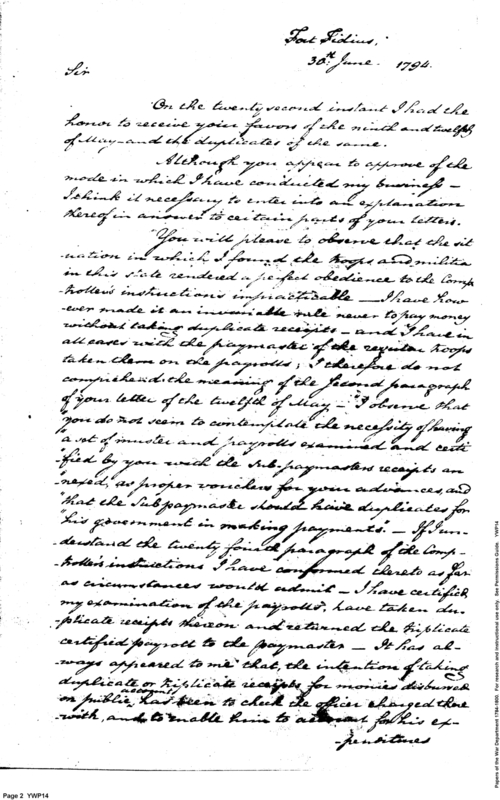 Fort Fidius,
30th June. 1794.
Sir
On the twenty second instant I had the
honor to receive your favors of the ninth and twelfth
of May - and the duplicates of the same.
Although you appear to approve of the
mode in which I have conducted my business -
I think it necessary to enter into an explanation
thereof in answer to certain parts of your letters.
You will please to observe that the sit
uation in which I found the troops and militia
in this state rendered a perfect obedience to the Comp
troller's instructions impracticable - I have how-
ever made it an invariable rule never to pay money
without taking duplicate receipts - and I have in
all cases with the paymaster of the regular troops
taken them on the payrolls; I therefore do not
comprehend the meaning of the second paragraph
of your letter of the twelfth of May - "I observe that
"you do not seem to contemplate the necessity of having
"a set of muster and payrolls examined and certi
"fied by you with the Sub-paymasters receipts an
"nexed, as proper vouchers for your advances, and
"that the Subpaymaster should have duplicates for
"his government in making payments." - If I un-
derstand the twenty fourth paragraph of the Comp-
troller's instructions I have conformed thereto as far
as circumstances would admit - I have certified
my examination of the payrolls, have taken du-
plicate receipts thereon and returned the triplicate
certified payroll to the paymaster - It has al-
ways appeared to me that, the intention of taking
duplicate or triplicate receipts for monies disbursed
on public accounts, has been to check the officer charged there
with, and to enable him to account for his ex-
penditures
Page 2 YWP14
Papers of the War Department 1784-1800. For research and instructional use only. See Permissions Guide. YWP14